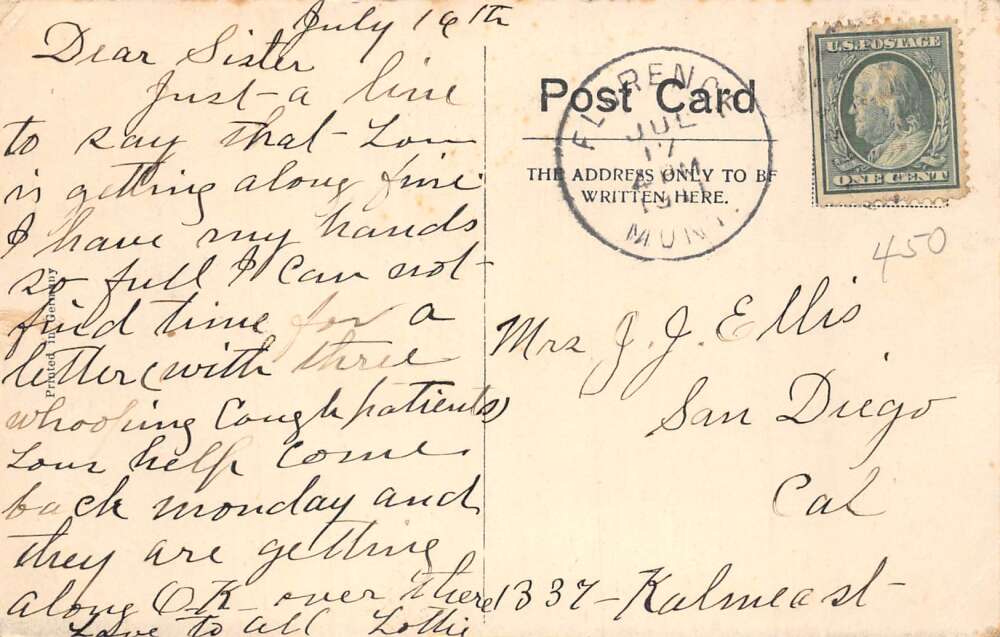 July 16th
Dear Sister
Just a line
to say that Lou
is getting along fine
I have my hands
so full I can not
find time for a
letter (with three
whooping Cough patients)
Lous help come
back monday and
they are getting
along OK over there
Love to all Lottie
Printed in Germany
Post Card
THE ADDRESS ONLY TO BE
WRITTEN HERE.
FLORENCE
JUL
17
PM
MONT.
U.S. POSTAGE
ONE CENT
450
Mrs J. J. Ellis
San Diego
Cal
1337-Kalmeast